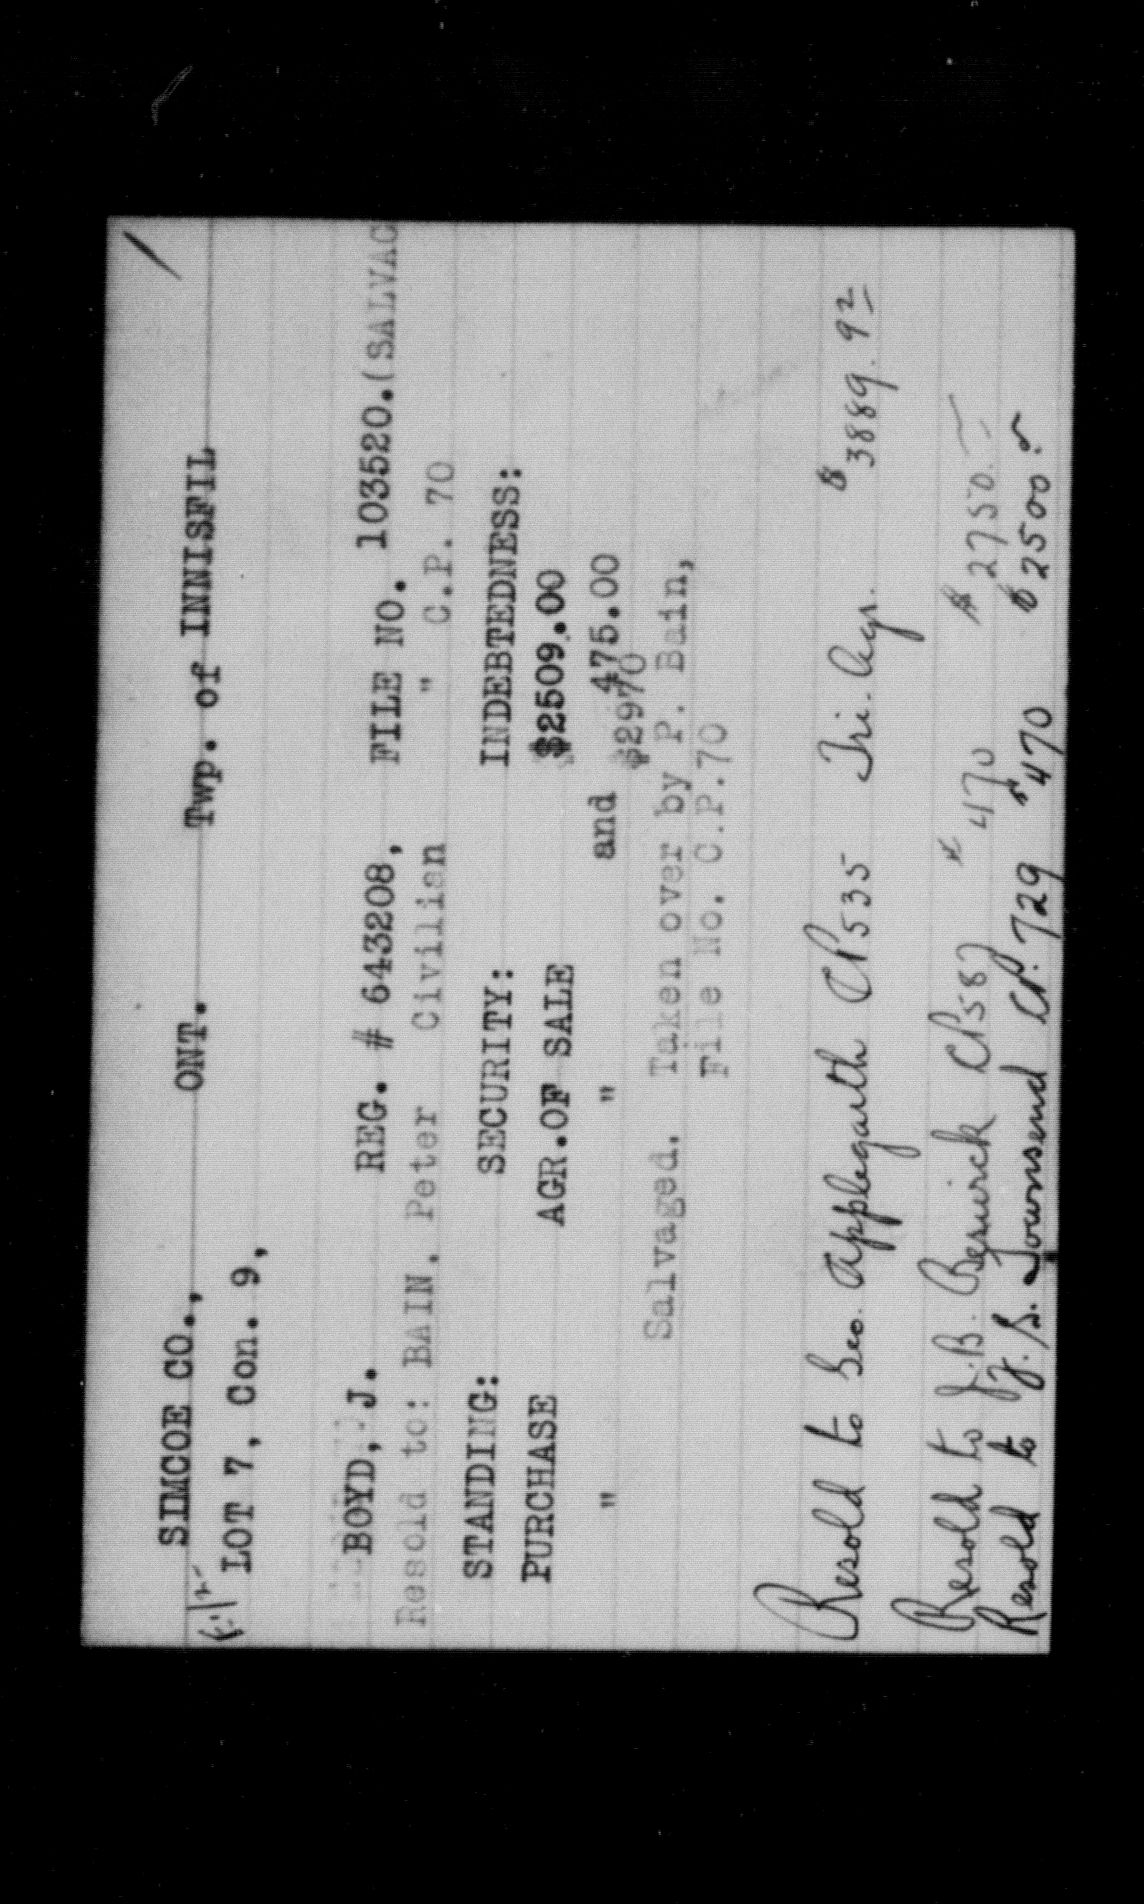 SIMCOE CO., ONT. Twp. of INNISFIL
LOT 7, Con. 9,
BOYD, J. REG. # 643208, FILE NO. 103520.(SALVAG
Resold to: BAIN, Peter Civilian " C.P. 70
STANDING: SECURITY: INDEBTEDNESS:
PURCHASE AGR.OF SALE $2509.00
" " and 475.00
$2970
Salvaged. Taken over by P. Bain,
File No. C.P.70
Resold to Geo. Applegarth CP535 Tri. Agr. $3889.92
Resold to J.B. Beswick CP587 470 $2750.-
Resold to J. S. Townsend CP. 729 $470 $2500.